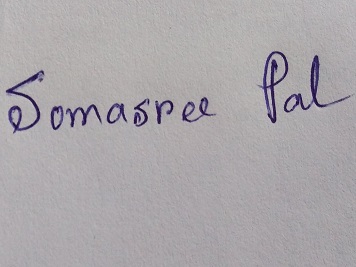 Somasree Pal